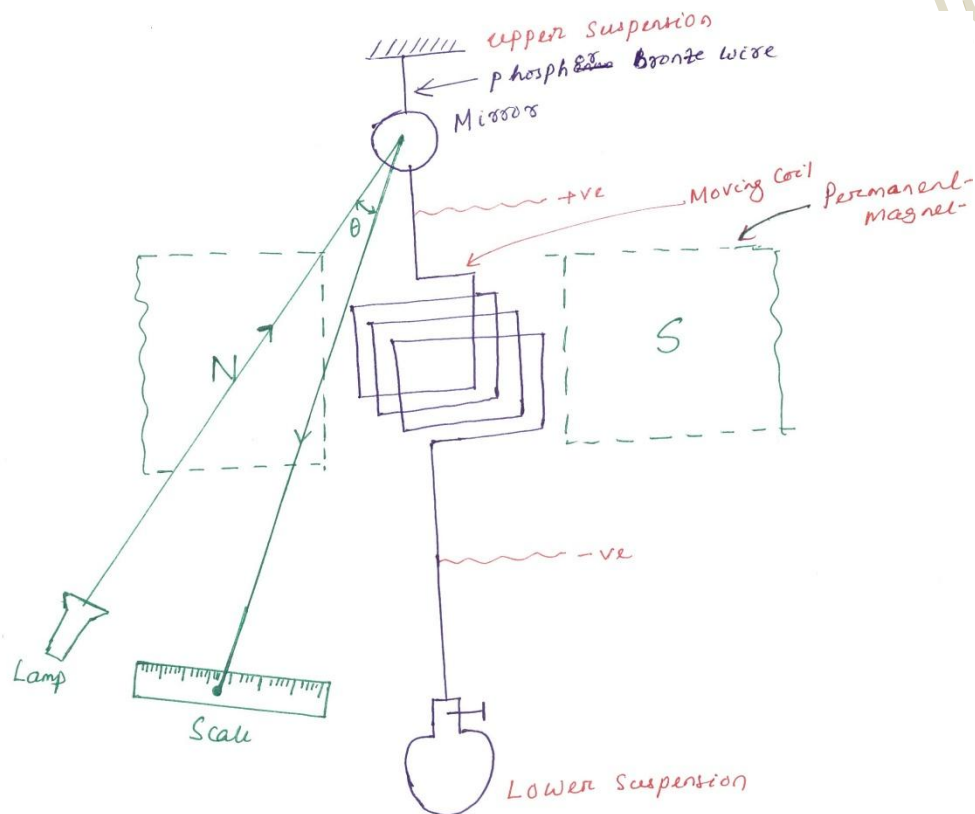 Upper Suspension
phosphor Bronze wire
Mirror
+ve
Moving Coil
Permanent-
magnet-
θ
N
S
-ve
Lamp
Scale
Lower Suspension